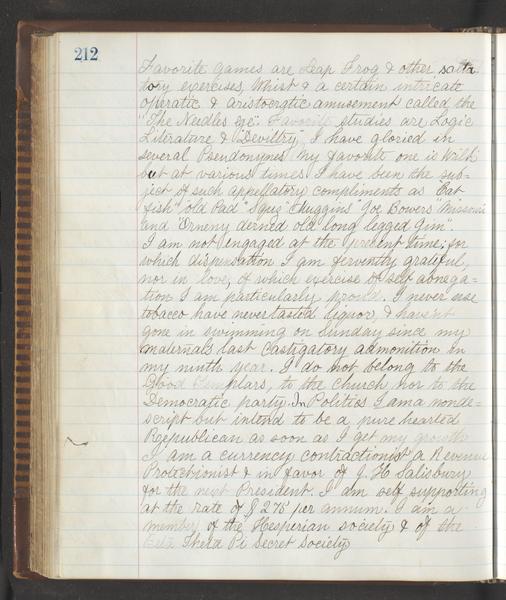 212
Favorite games are Leap Frog & other salta
tory exercises, Whist & a certain intricate
operatic & aristocratic amusement called the
"The Needles eye". Favorite studies are Logic
Literature & "Deviltry". I have gloried in
several Pseudonymes my favorite one is Will
but at various times I have been the sub=
ject of such appellatory compliments as "Cat
fish" "old Pad" "Squiz" "Chuggins" "Joe Bowers" "Missouri
and "Orneny derned old long legged Jim".
I am not engaged at the present time; for
which dispensation I am fervently grateful,
nor in love, of which exercise of self abnega=
tion I am particularly proud. I never use
tobacco have never tasted liquor, & havent
gone in swimming on Sunday since my
maternal's last castigatory admonition in
my ninth year. I do not belong to the
Good Templars, to the church nor to the
Democratic party. In Politics I am a nonde=
script but intend to be a pure hearted
Republican as soon as I get my growth
I am a currency contractionist a Revenue
Protectionist & in favor of J. H. Salisbury
for the next President. I am self supporting
at the rate of $275 per annum. I am a
member of the Hesperian society & of the
Beta Theta Pi Secret Society